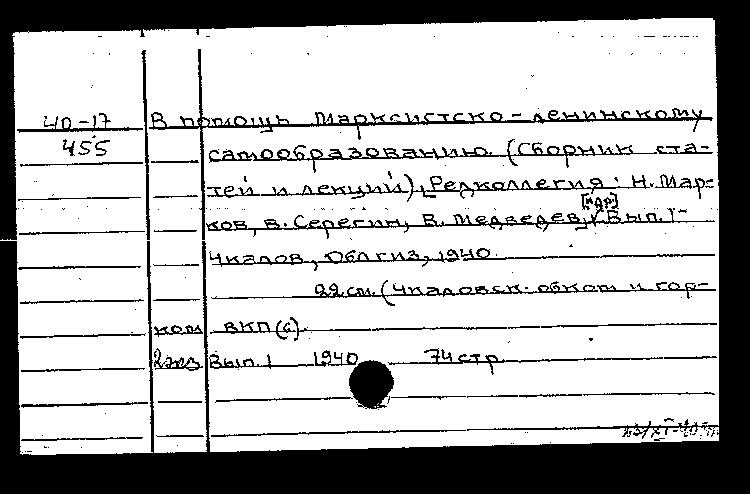 40-17 В помощь марксистско-ленинскому
455 самообразованию. (Сборник ста-
тей и лекций). Редколлегия: Н. Мар-
ков, В. Серегин, В. Медведев [и др]. Вып. 1-
Чкалов, Облгиз, 1940.
22 см. (Чкаловск. обком и гор-
ком ВКП(б).
2 экз Вып. 1 1940 74 стр